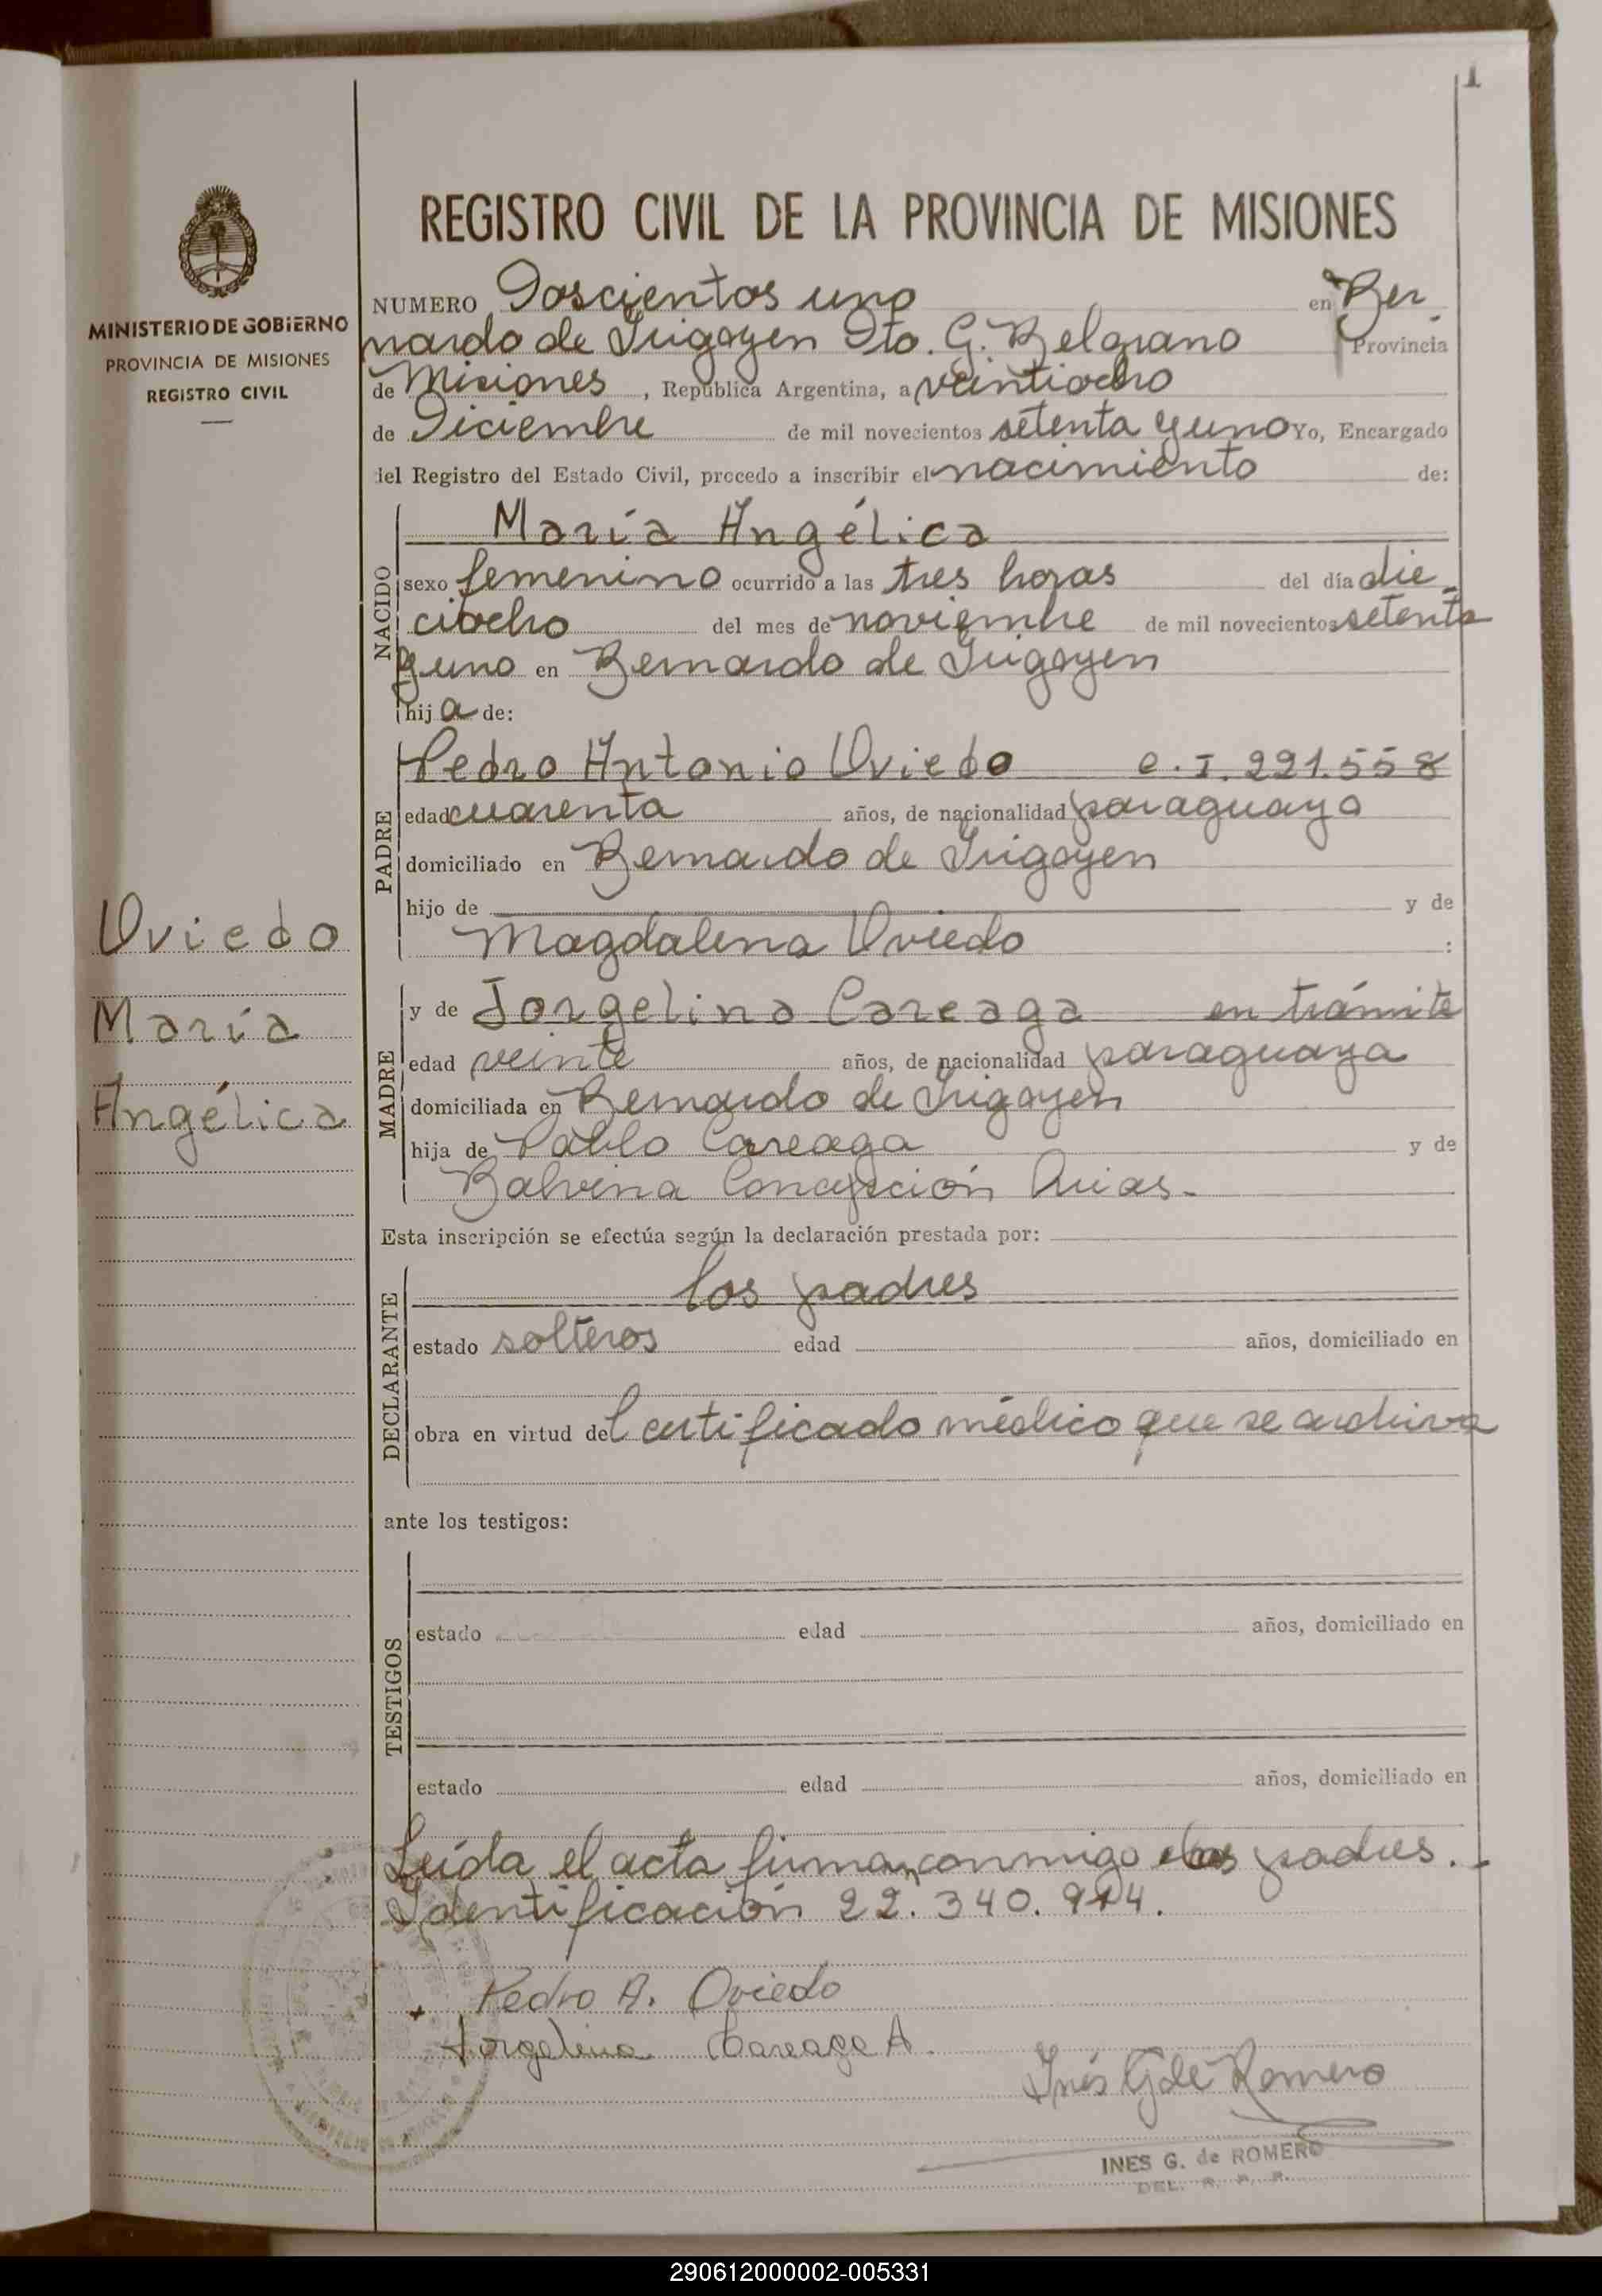 1
MINISTERIO DE GOBIERNO
PROVINCIA DE MISIONES
REGISTRO CIVIL
Oviedo
María
Angélica
REGISTRO CIVIL DE LA PROVINCIA DE MISIONES
NUMERO Doscientos uno en Ber
nardo de Irigoyen Dto. G. Belgrano Provincia
de Misiones, República Argentina, a veintiocho
de Diciembre de mil novecientos setenta y uno Yo, Encargado
del Registro del Estado Civil, procedo a inscribir el nacimiento de:
NACIDO
María Angélica
sexo femenino ocurrido a las tres horas del día die
ciocho del mes de noviembre de mil novecientos setenta
y uno en Bernardo de Irigoyen
hija de:
PADRE
Pedro Antonio Oviedo C.I. 221.558
edad cuarenta años, de nacionalidad paraguaya
domiciliado en Bernardo de Irigoyen
hijo de y de
Magdalena Oviedo :
MADRE
y de Jorgelina Careaga en trámite
edad veinte años, de nacionalidad paraguaya
domiciliada en Bernardo de Irigoyen
hija de Pablo Careaga y de
Balvina Concepción Arias.-
Esta inscripción se efectúa según la declaración prestada por:
DECLARANTE
los padres
estado solteros edad años, domiciliado en
obra en virtud del certificado médico que se archiva
ante los testigos:
TESTIGOS
estado edad años, domiciliado en
estado edad años, domiciliado en
Leída el acta firman conmigo los padres.-
Identificación 22.340.914.
Pedro A. Oviedo
Jorgelina Careaga A.
Inés G de Romero
INES G. de ROMERO
DEL. R. P. P.
290612000002-005331